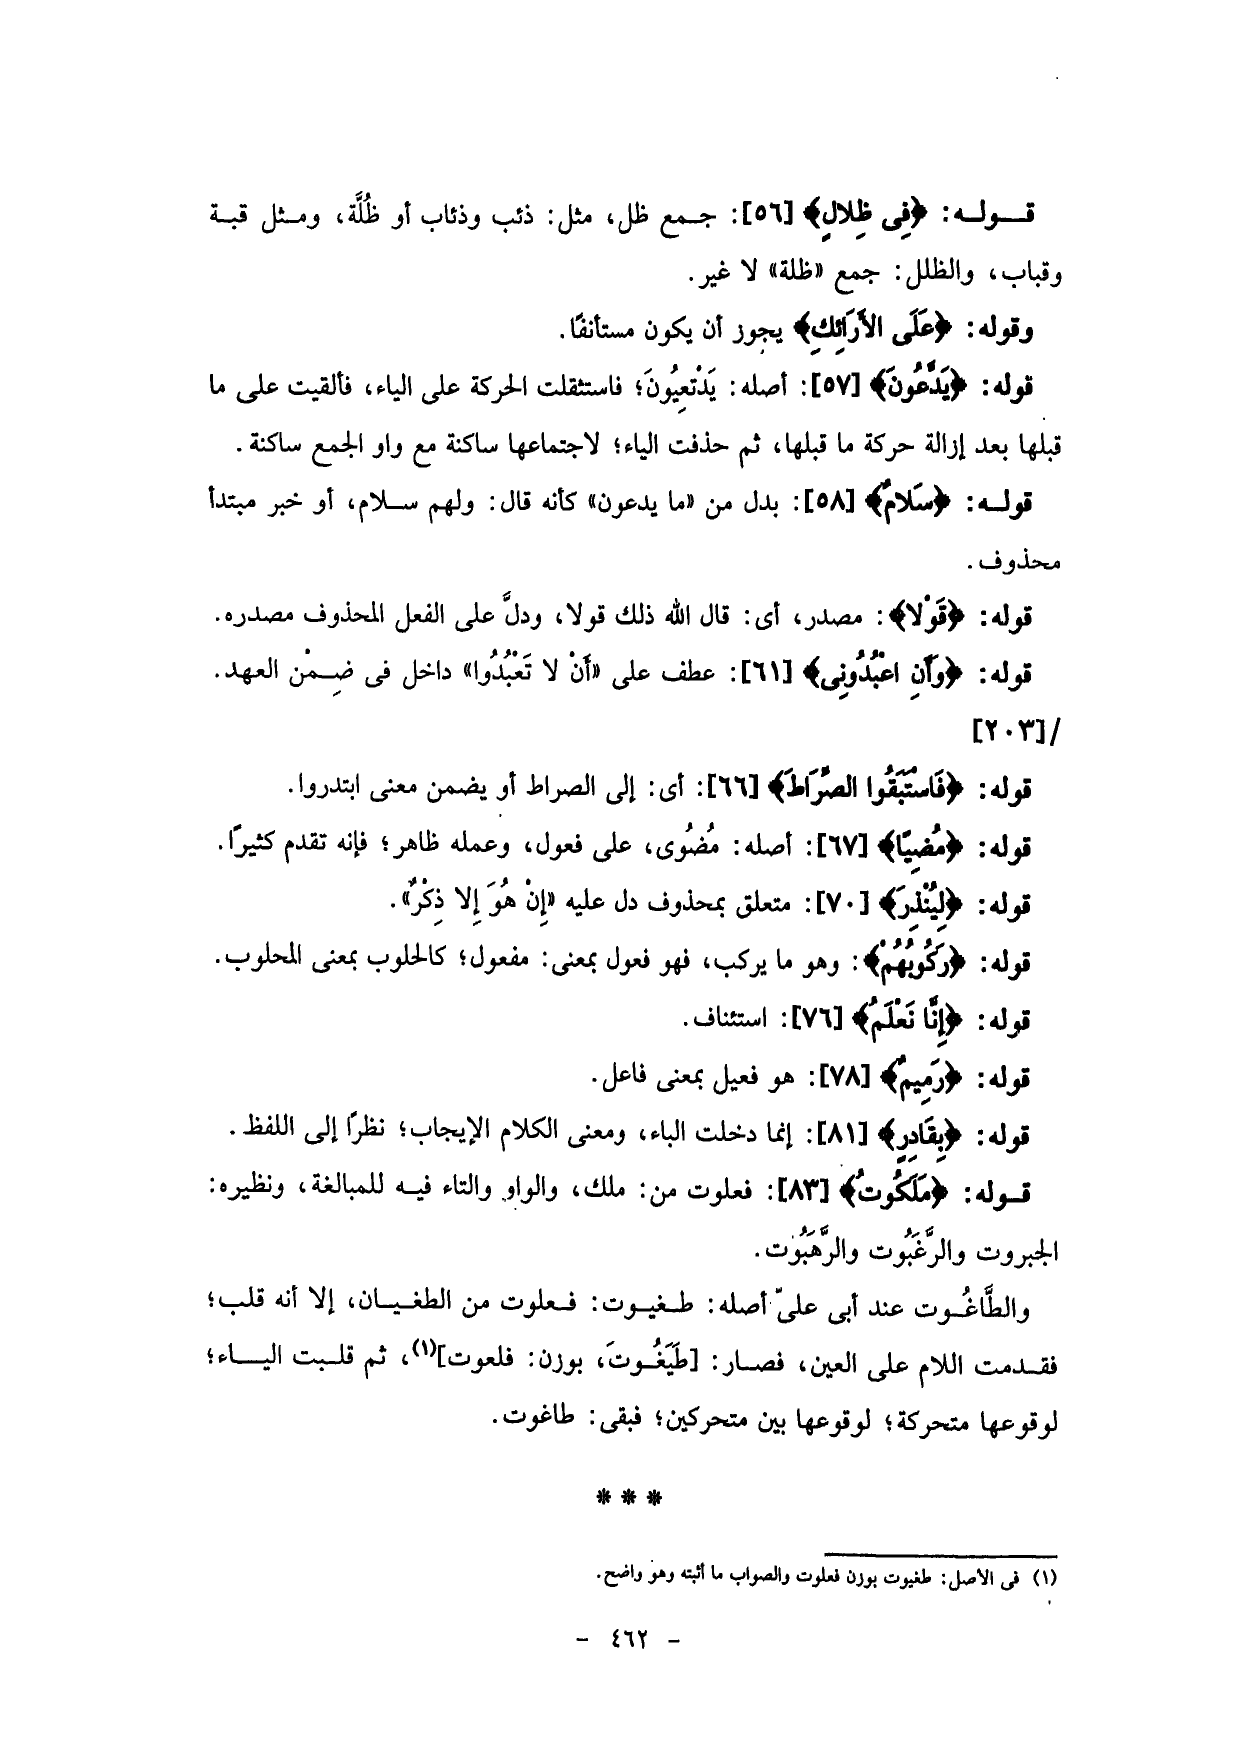 قـــولــه: ﴿فِى ظِلالٍ﴾ [٥٦]: جـمع ظل، مثل: ذئب وذئاب أو ظُلَّة، ومـثل قبـة
وقباب، والظلل: جمع «ظلة» لا غير.
وقوله: ﴿عَلَى الأَرَائِكِ﴾ يجوز أن يكون مستأنفًا.
قوله: ﴿يَدَّعُونَ﴾ [٥٧]: أصله: يَدْتعِيُونَ؛ فاستثقلت الحركة على الياء، فألقيت على ما
قبلها بعد إزالة حركة ما قبلها، ثم حذفت الياء؛ لاجتماعها ساكنة مع واو الجمع ساكنة.
قولـه: ﴿سَلامٌ﴾ [٥٨]: بدل من «ما يدعون» كأنه قال: ولهم سـلام، أو خبر مبتدأ
محذوف.
قوله: ﴿قَوْلا﴾: مصدر، أى: قال الله ذلك قولا، ودلَّ على الفعل المحذوف مصدره.
قوله: ﴿وَأَنِ اعْبُدُونِى﴾ [٦١]: عطف على «أَنْ لا تَعْبُدُوا» داخل فى ضِـمْن العهد.
/[٢٠٣]
قوله: ﴿فَاسْتَبَقُوا الصِّرَاطَ﴾ [٦٦]: أى: إلى الصراط أو يضمن معنى ابتدروا.
قوله: ﴿مُضِيًّا﴾ [٦٧]: أصله: مُضُوى، على فعول، وعمله ظاهر؛ فإنه تقدم كثيرًا.
قوله: ﴿لِيُنْذِرَ﴾ [٧٠]: متعلق بمحذوف دل عليه «إِنْ هُوَ إِلا ذِكْرٌ».
قوله: ﴿رَكُوبُهُمْ﴾: وهو ما يركب، فهو فعول بمعنى: مفعول؛ كالحلوب بمعنى المحلوب.
قوله: ﴿إِنَّا نَعْلَمُ﴾ [٧٦]: استئناف.
قوله: ﴿رَمِيمٌ﴾ [٧٨]: هو فعيل بمعنى فاعل.
قوله: ﴿بِقَادِرٍ﴾ [٨١]: إنما دخلت الباء، ومعنى الكلام الإيجاب؛ نظرًا إلى اللفظ.
قـوله: ﴿مَلَكُوتُ﴾ [٨٣]: فعلوت من: ملك، والواو والتاء فيـه للمبالغة، ونظيره:
الجبروت والرَّغَبُوت والرَّهَبُوت.
والطَّاغُـوت عند أبى علىّ أصله: طـغيـوت: فـعلوت من الطغـيـان، إلا أنه قلب؛
فقـدمت اللام على العين، فصار: [طَيَغُـوتَ، بوزن: فلعوت](١)، ثم قلـبت اليـــاء؛
لوقوعها متحركة؛ لوقوعها بين متحركين؛ فبقى: طاغوت.
***
(١) فى الأصل: طغيوت بوزن فعلوت والصواب ما أثبته وهو واضح.
- ٤٦٢ -